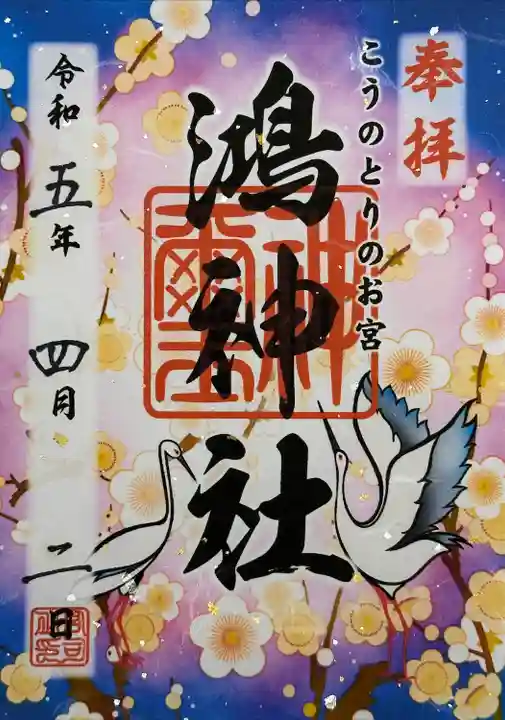 奉拝
こうのとりのお宮
鴻神社
令和五年四月二日